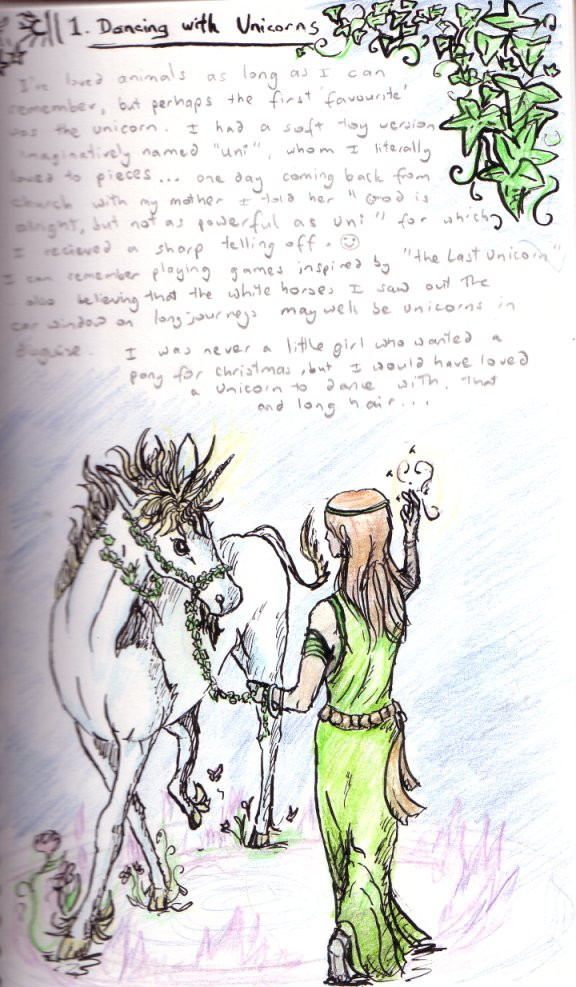 1. Dancing with Unicorns
I've loved animals as long as I can
remember, but perhaps the first 'favourite'
was the unicorn. I had a soft toy version
imaginatively named "Uni", whom I literally
loved to pieces... one day coming back from
church with my mother I told her "God is
alright, but not as powerful as Uni" for which
I recieved a sharp telling off. ☺
I can remember playing games inspired by "the Last Unicorn"
also believing that the white horses I saw out the
car window on long journeys may well be unicorns in
disguise. I was never a little girl who wanted a
pony for christmas, but I would have loved
a unicorn to dance with. That
and long hair...